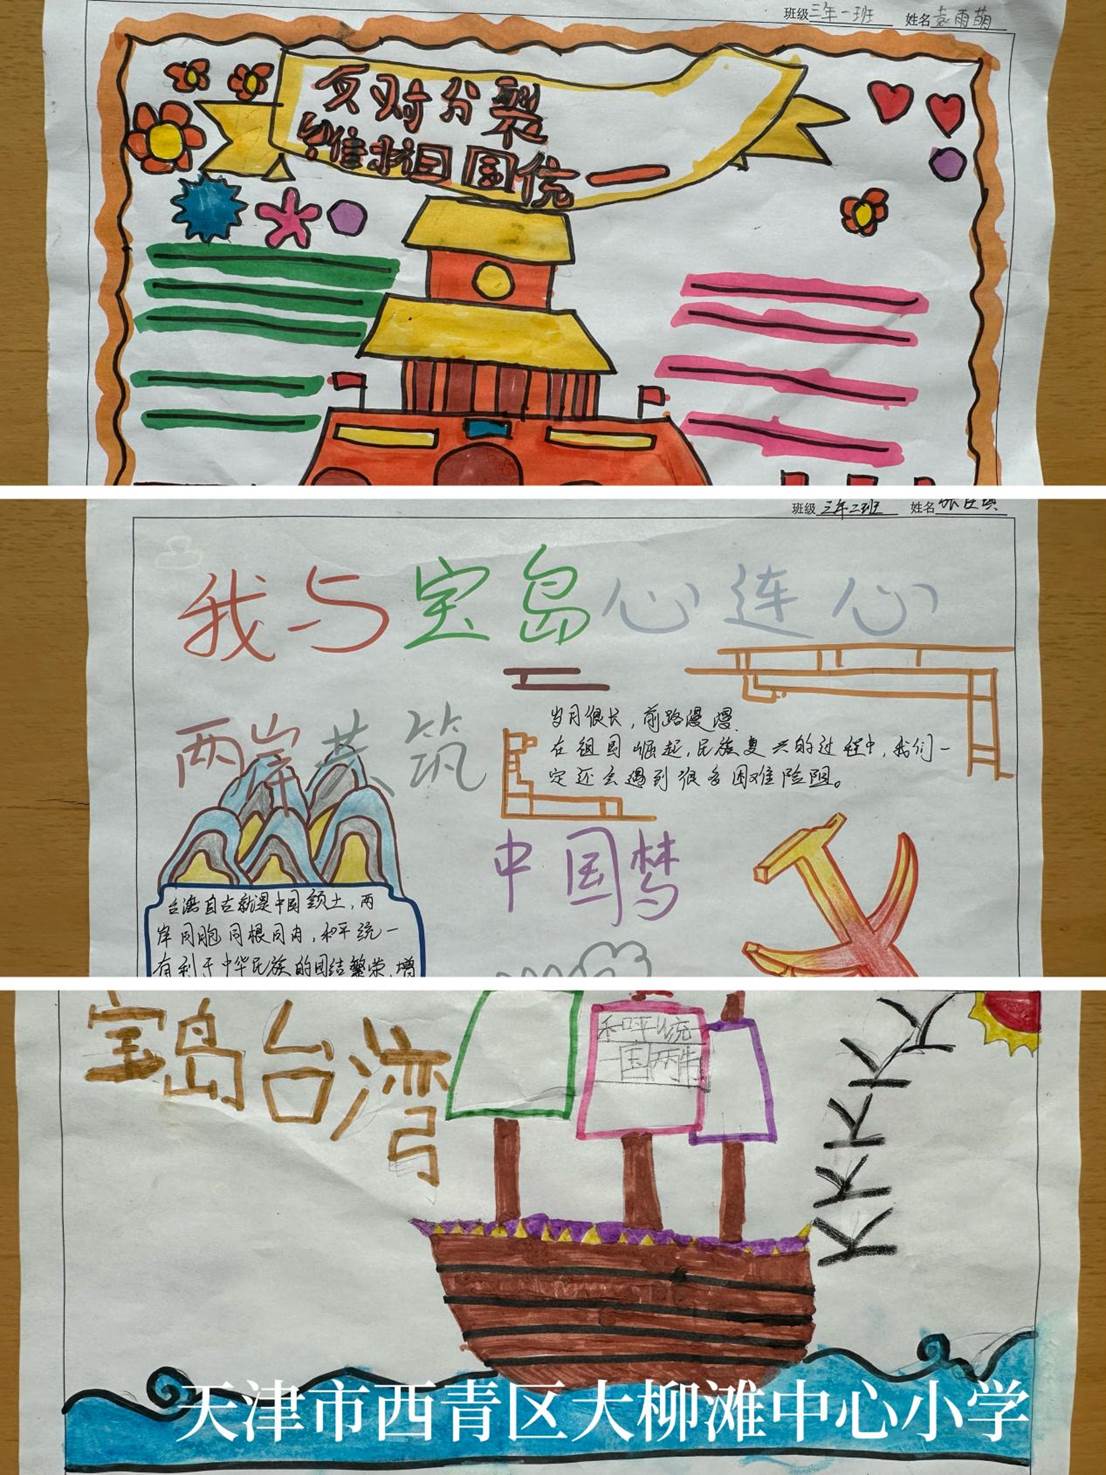 班级 三年一班 姓名 袁雨萌
反对分裂
维祖国统一
班级 三年二班 姓名
我与宝岛心连心
两岸共筑
岁月很长，前路漫漫
在祖国崛起，民族复兴的过程中，我们一
定还会遇到很多困难险阻。
中国梦
台湾自古就是中国领土，两
岸同胞同根同肉，和平统一
有利于中华民族的团结繁荣，增
宝岛台湾
和平统
一国两制
天津市西青区大柳滩中心小学